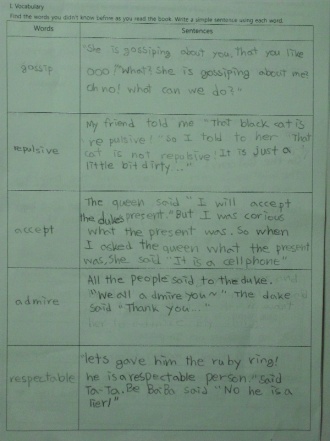 I. Vocabulary
Find the words you didn't know before as you read the book. Write a simple sentence using each word.
Words
Sentences
gossip
"She is gossiping about you. That you like
OOO!" "What? She is gossiping about me?
Oh no! What can we do?"
repulsive
My friend told me "That black cat is
repulsive!" So I told to her "That
cat is not repulsive! It is just a
little bit dirty.."
accept
The queen said "I will accept
the dukes present." But I was corious
what the present was. So when
I asked the queen what the present
was, She said "It is a cellphone"
admire
All the people said to the duke.
"We all admire you~" The duke
said "Thank you..."
respectable
"lets gave him the ruby ring!
he is a respectable person." said
Ta-Ta. Be BaBa said "No he is a
lier!"